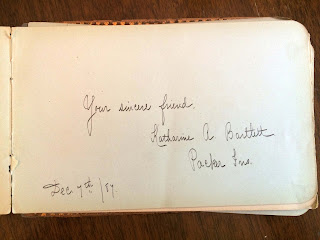 Your sincere friend.
Katharine A Bartlett
Packer Ins.
Dec 7th/87